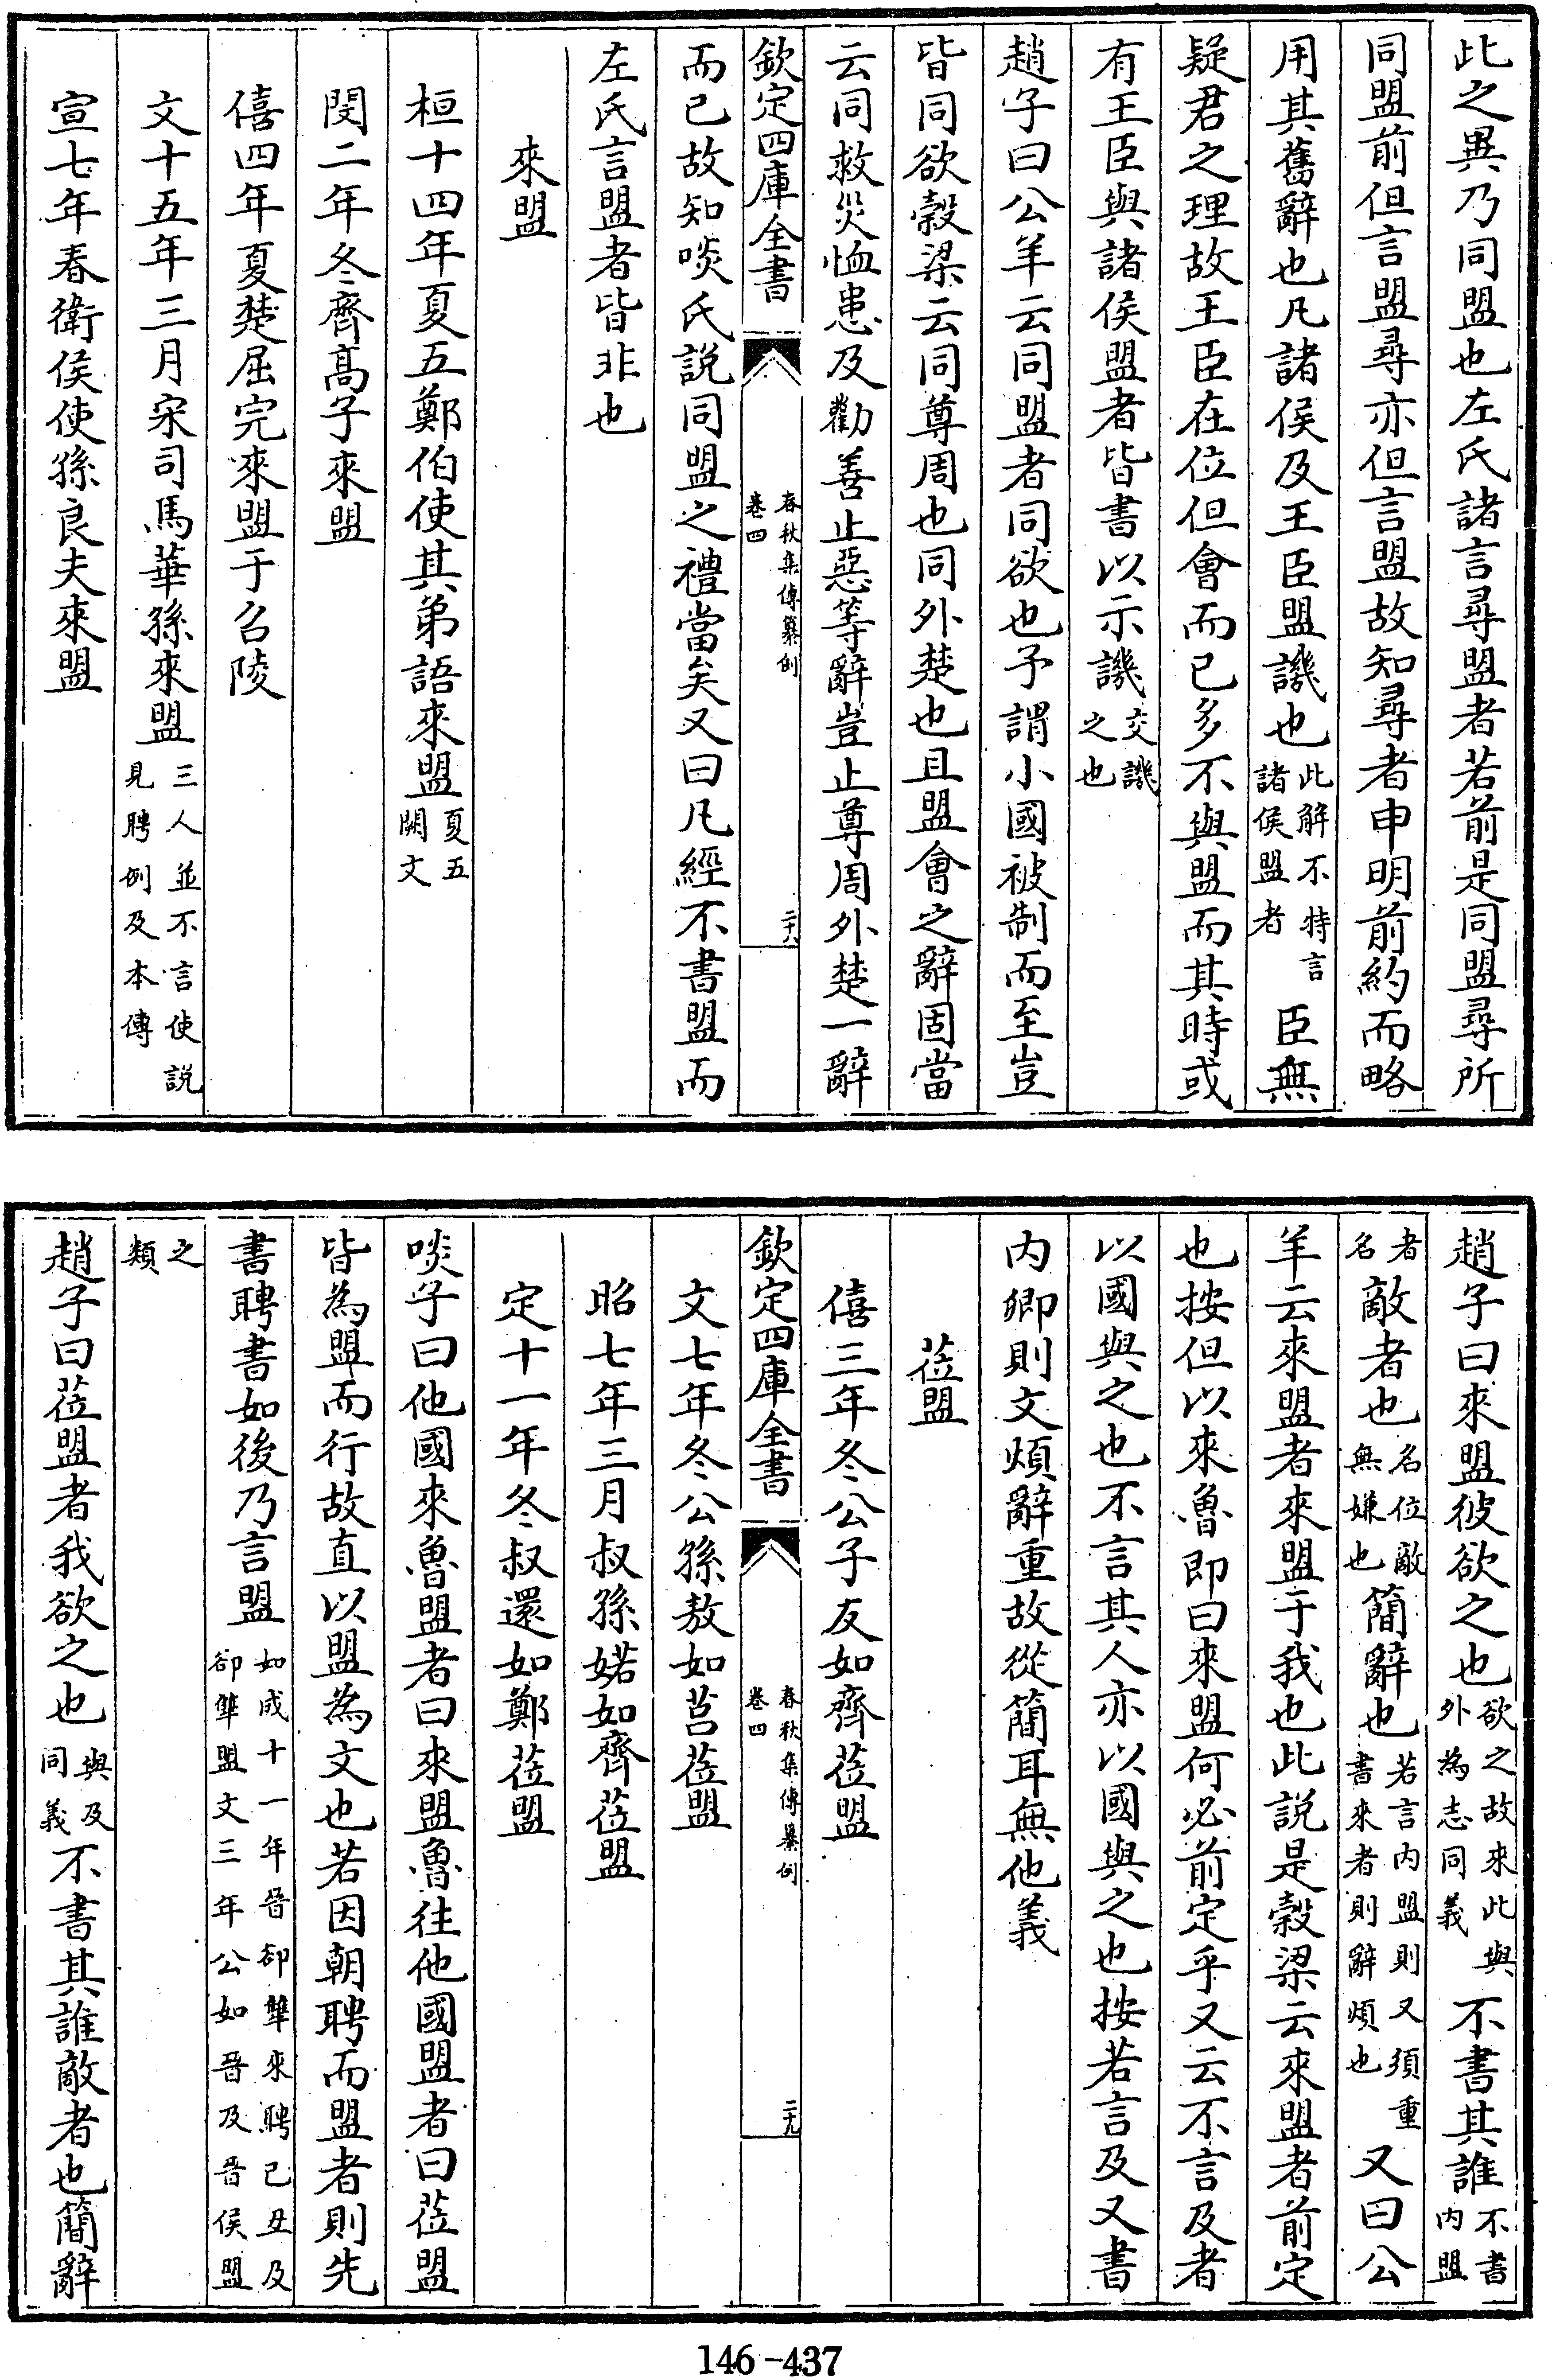 此之異乃同盟也左氏諸言尋盟者若前是同盟尋所
同盟前但言盟尋亦但言盟故知尋者申明前約而略
用其舊辭也凡諸侯及王臣盟譏也此解不特言諸侯盟者臣無
疑君之理故王臣在位但會而已多不與盟而其時或
有王臣與諸侯盟者皆書以示譏交譏之也
趙子曰公羊云同盟者同欲也予謂小國被制而至豈
皆同欲榖梁云同尊周也同外楚也且盟會之辭固當
云同救災恤患及勸善止惡等辭豈止尊周外楚一辭
欽定四庫全書
春秋集傳纂例
卷四
二十八
而已故知啖氏說同盟之禮當矣又曰凡經不書盟而
左氏言盟者皆非也
來盟
桓十四年夏五鄭伯使其弟語來盟夏五闕文
閔二年冬齊髙子來盟
僖四年夏楚屈完來盟于召陵
文十五年三月宋司馬華孫來盟三人並不言使説見聘例及本傳
宣七年春衛侯使孫良夫來盟
趙子曰來盟彼欲之也欲之故來此與外為志同義不書其誰不書內盟
者名敵者也名位敵無嫌也簡辭也若言內盟則又須重書來者則辭煩也又曰公
羊云來盟者來盟于我也此説是榖梁云來盟者前定
也按但以來魯即曰來盟何必前定乎又云不言及者
以國與之也不言其人亦以國與之也按若言及又書
内卿則文煩辭重故從簡耳無他義
莅盟
僖三年冬公子友如齊莅盟
欽定四庫全書
春秋集傳纂例
卷四
二十九
文七年冬公孫敖如莒莅盟
昭七年三月叔孫婼如齊莅盟
定十一年冬叔還如鄭莅盟
啖子曰他國來魯盟者曰來盟魯往他國盟者曰莅盟
皆為盟而行故直以盟為文也若因朝聘而盟者則先
書聘書如後乃言盟如成十一年晉郤犨來聘已丑及郤犨盟文三年公如晉及晉侯盟
之類
趙子曰莅盟者我欲之也與及同義不書其誰敵者也簡辭
146-437